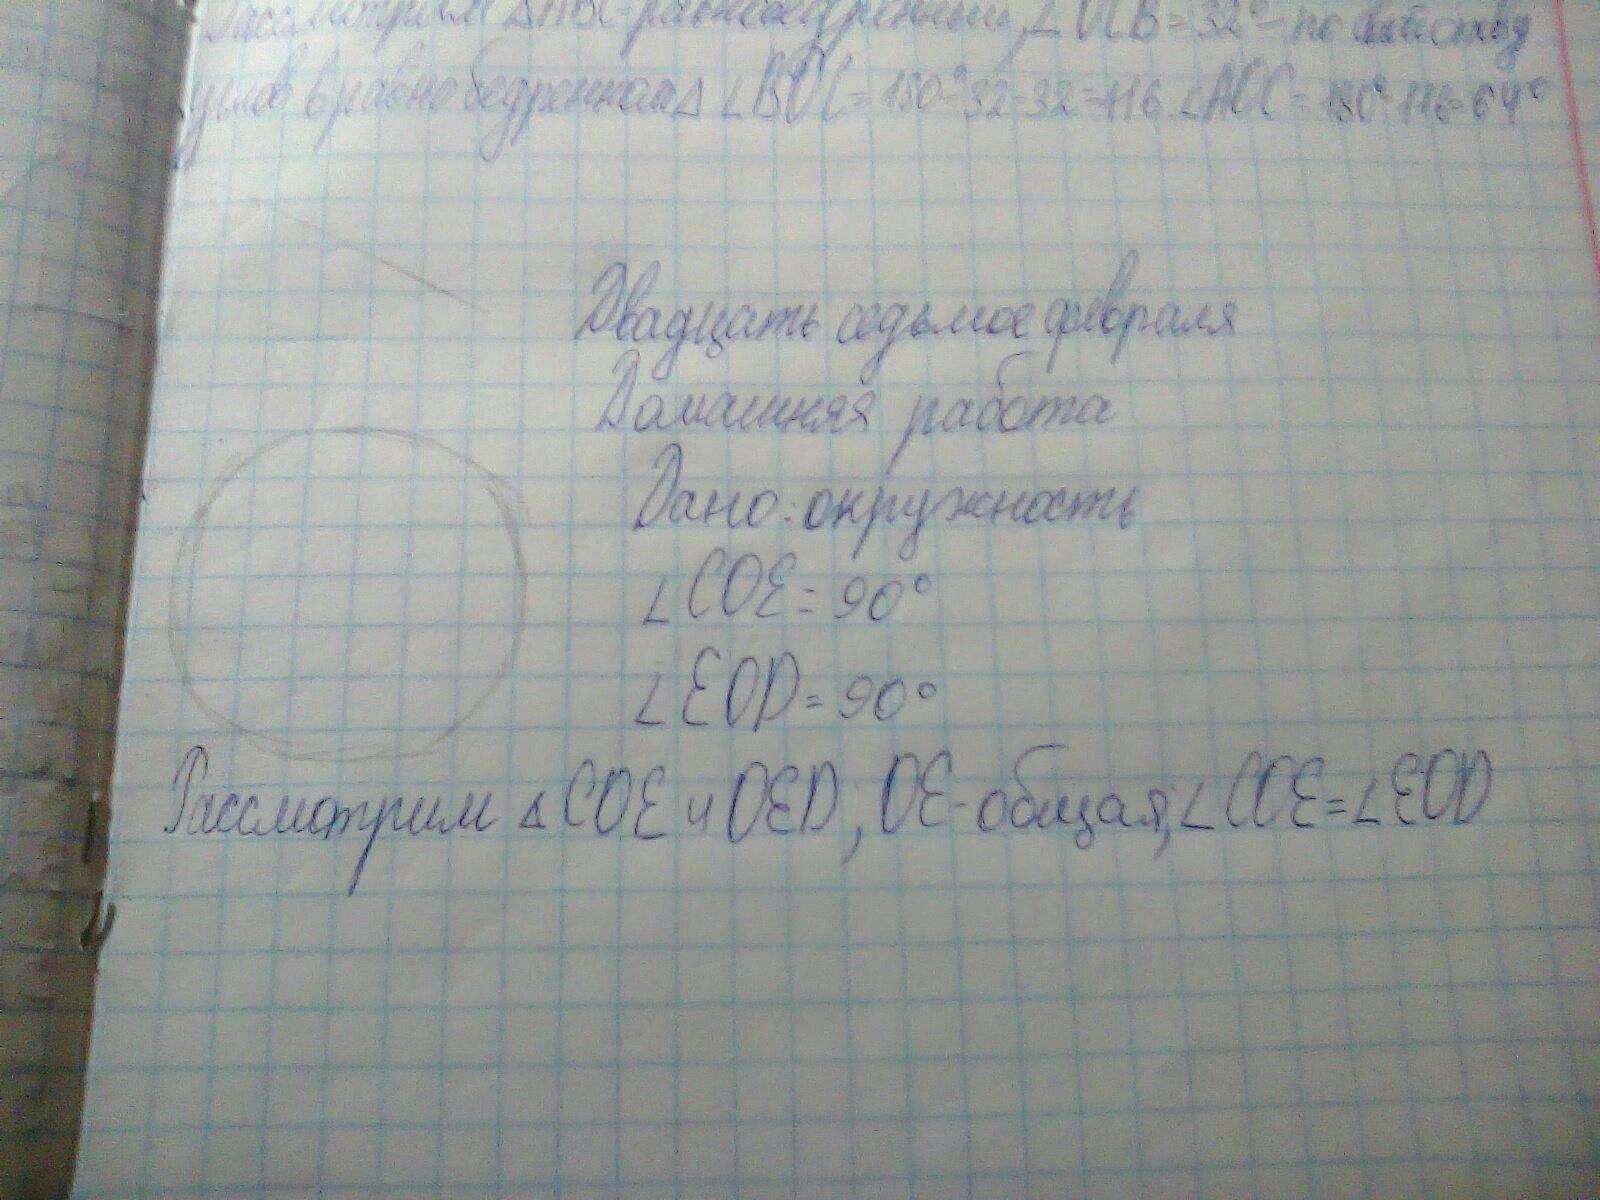 Рассмотрим △ABC-равнобедренный, ∠OCB=32°-по свойству
углов в равнобедренном △ ∠BOC=180°-32-32=116. ∠AOC=180°-116=64°
Двадцать седьмое февраля
Домашняя работа
Дано: окружность
∠COE=90°
∠EOD=90°
Рассмотрим △COE и OED; OE-общая; ∠COE=∠EOD